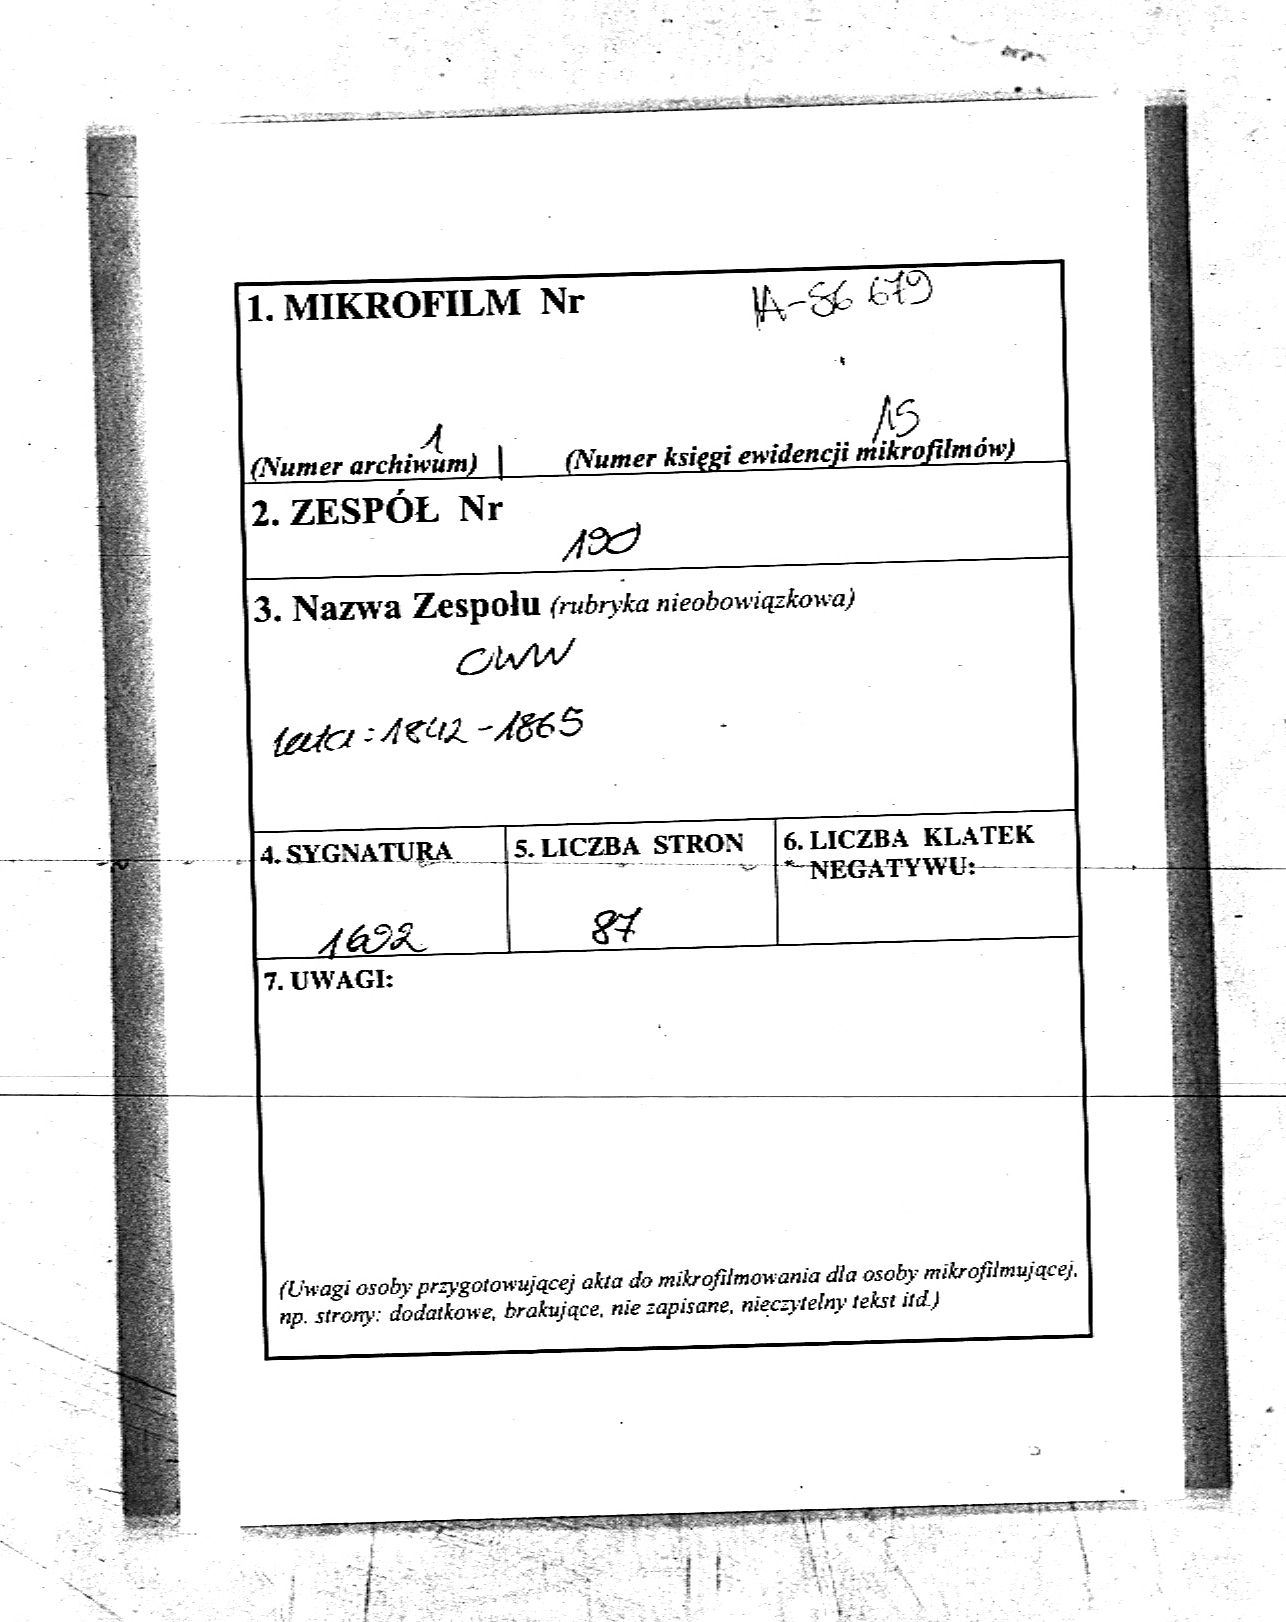 1. MIKROFILM Nr
IA-86 679
1
15
(Numer archiwum) | (Numer księgi ewidencji mikrofilmów)
2. ZESPÓŁ Nr
190
3. Nazwa Zespołu (rubryka nieobowiązkowa)
CWW
lata: 1842-1865
4. SYGNATURA
5. LICZBA STRON
6. LICZBA KLATEK
NEGATYWU:
1692
87
7. UWAGI:
(Uwagi osoby przygotowującej akta do mikrofilmowania dla osoby mikrofilmującej,
np. strony: dodatkowe, brakujące, nie zapisane, nieczytelny tekst itd.)